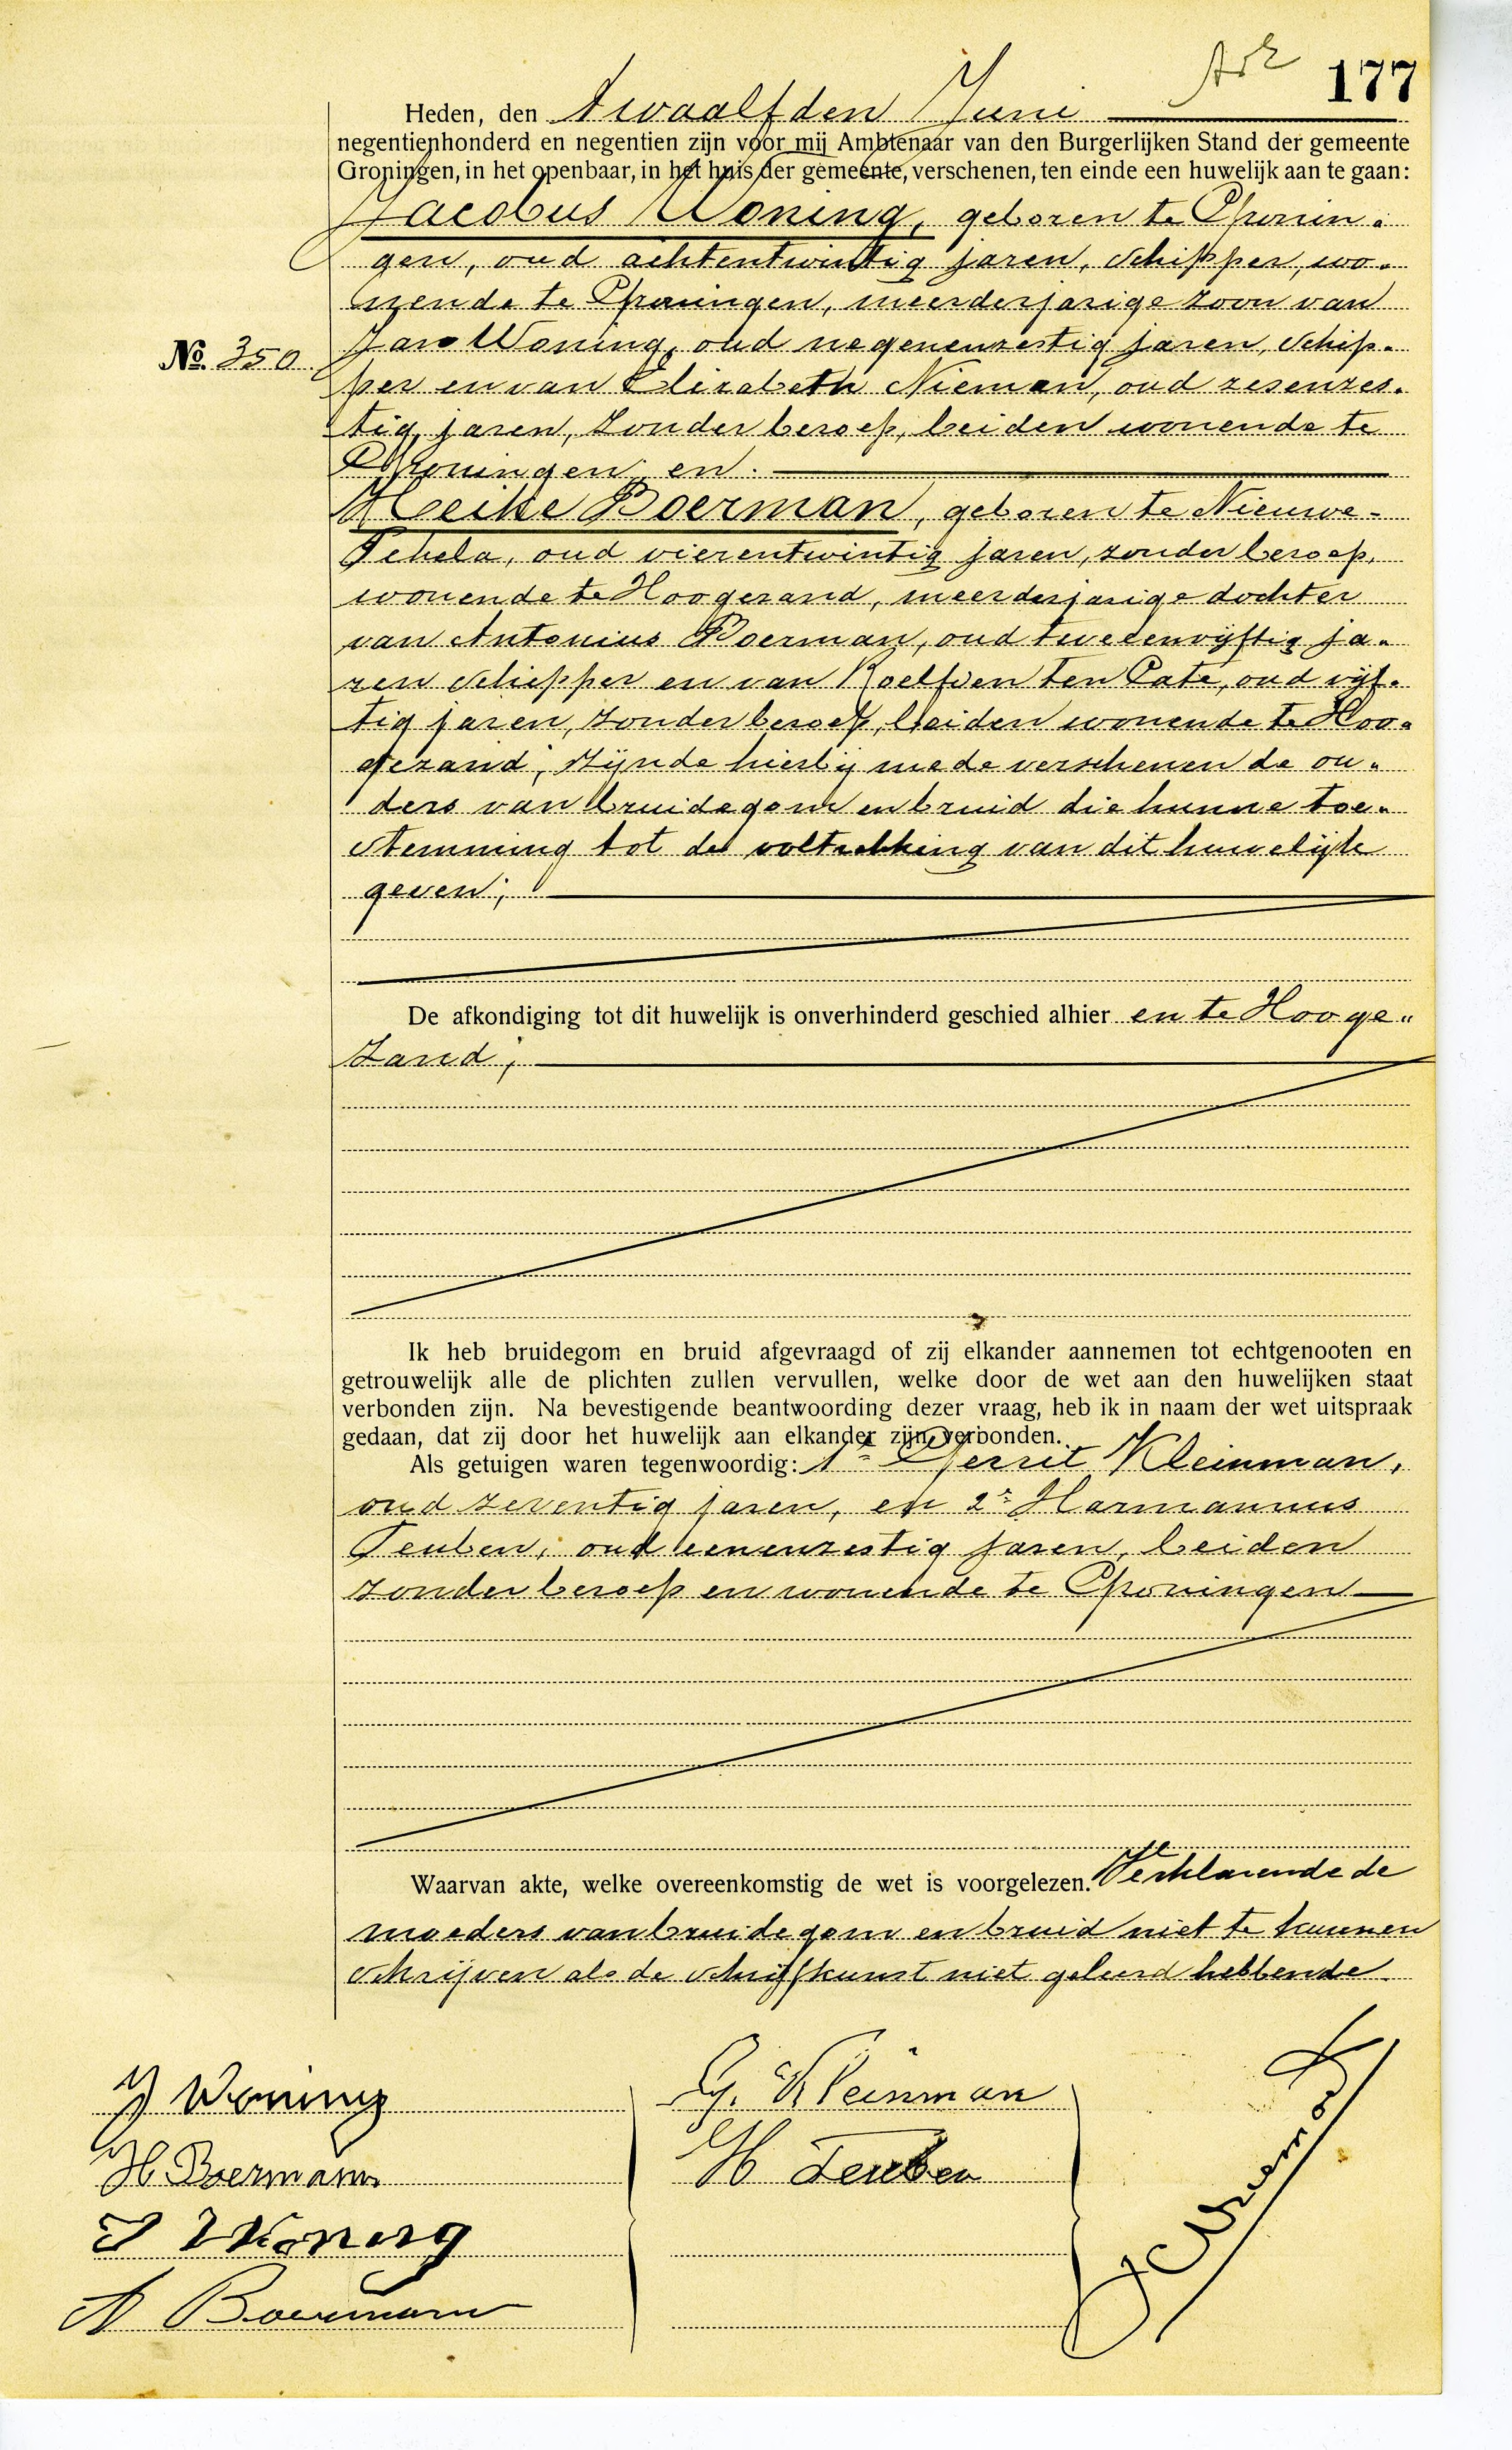 177
Heden, den twaalfden Juni
negentienhonderd en negentien zijn voor mij Ambtenaar van den Burgerlijken Stand der gemeente
Groningen, in het openbaar, in het huis der gemeente, verschenen, ten einde een huwelijk aan te gaan:
Jacobus Woning, geboren te Gronin-
gen, oud achtentwintig jaren, schipper, wo-
nende te Groningen, meerderjarige zoon van
Jan Woning, oud negenenzestig jaren, schip-
No. 350
per en van Elizabeth Nieman, oud zesenzes-
tig jaren, zonder beroep, beiden wonende te
Groningen; en
Heike Boerman, geboren te Nieuwe-
Pekela, oud vierentwintig jaren, zonder beroep,
wonende te Hoogezand, meerderjarige dochter
van Antonius Boerman, oud tweeenvijftig ja-
ren schipper en van Roelfien ten Cate, oud vijf-
tig jaren, zonder beroep, beiden wonende te Hoo-
gezand; zijnde hierbij mede verschenen de ou-
ders van bruidegom en bruid die hunne toe-
stemming tot de voltrekking van dit huwelijk
geven;
De afkondiging tot dit huwelijk is onverhinderd geschied alhier en te Hooge-
zand;
Ik heb bruidegom en bruid afgevraagd of zij elkander aannemen tot echtgenooten en
getrouwelijk alle de plichten zullen vervullen, welke door de wet aan den huwelijken staat
verbonden zijn. Na bevestigende beantwoording dezer vraag, heb ik in naam der wet uitspraak
gedaan, dat zij door het huwelijk aan elkander zijn verbonden.
Als getuigen waren tegenwoordig: 1e Gerrit Kleinman,
oud zeventig jaren, en 2e Harmannus
Teuben, oud eenenzestig jaren, beiden
zonder beroep en wonende te Groningen
Waarvan akte, welke overeenkomstig de wet is voorgelezen. Verklarende de
moeders van bruidegom en bruid niet te kunnen
schrijven als de schrijfkunst niet geleerd hebbende
J Woning
H. Boerman
J Woning
A Boerman
G. Kleinman
H Teuben